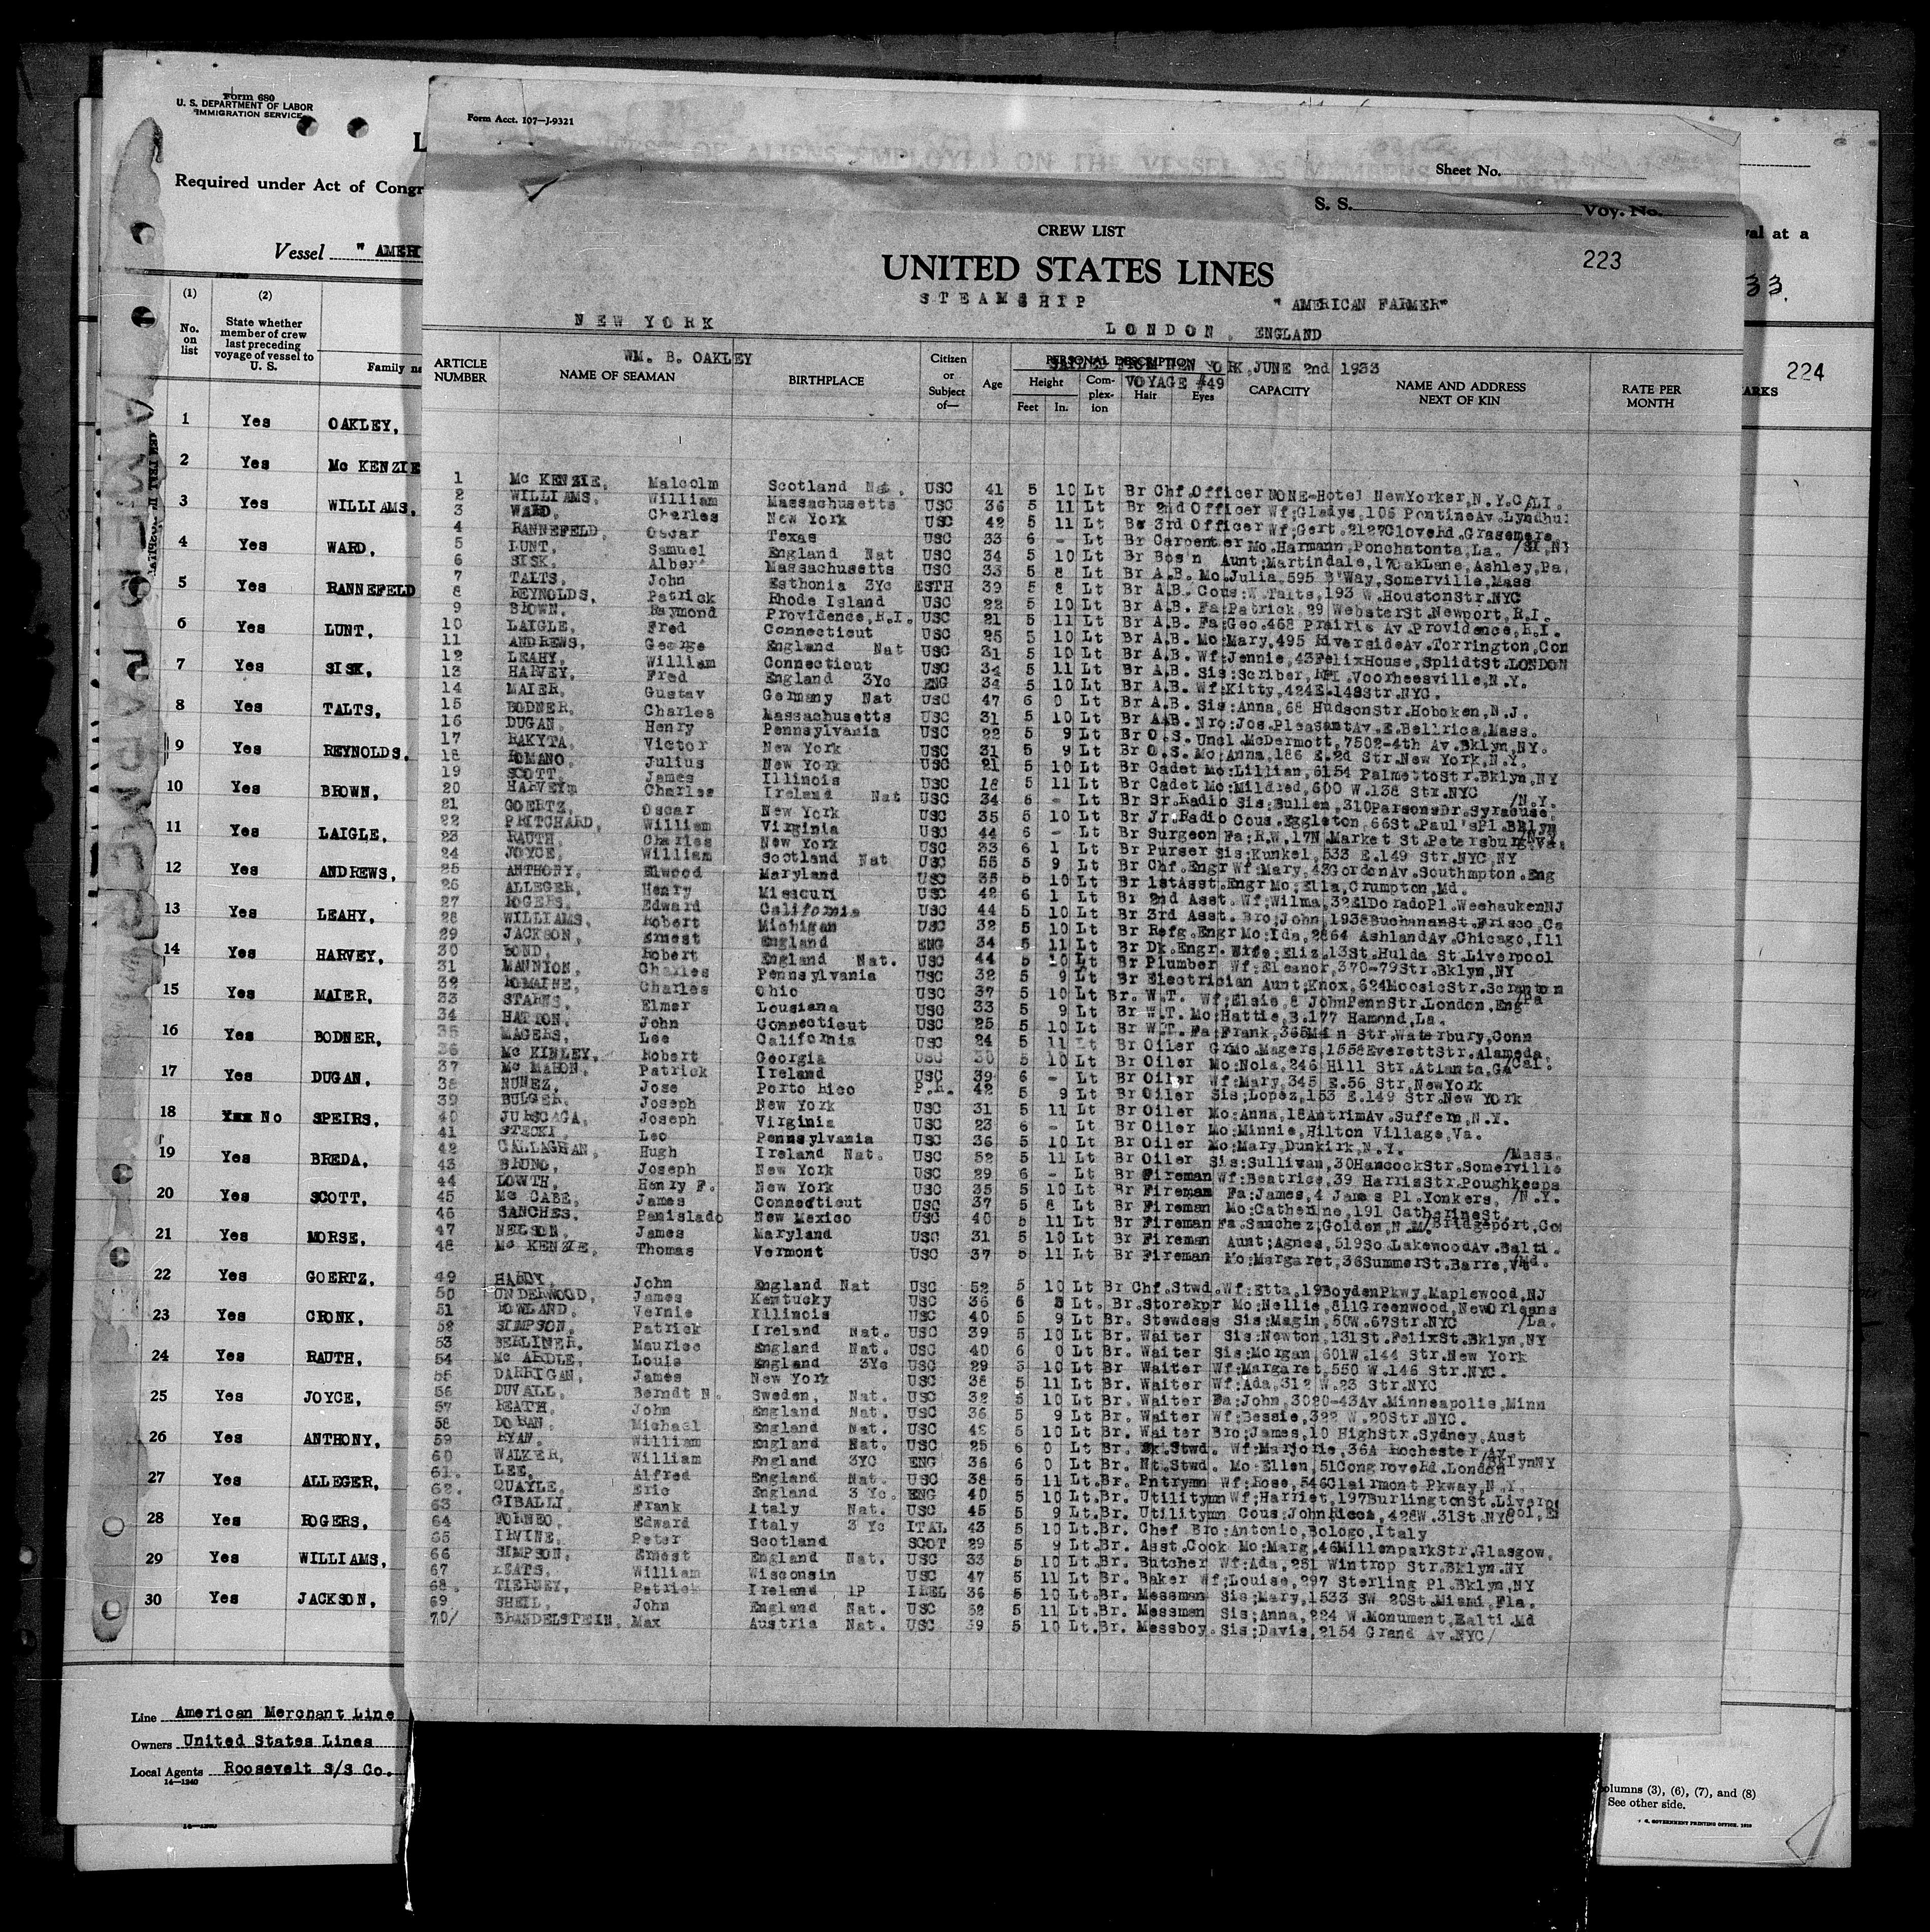 Form 680
U. S. DEPARTMENT OF LABOR
IMMIGRATION SERVICE
Required under Act of Congr
Vessel " AMER
(1) (2)
No. on list
State whether member of crew last preceding voyage of vessel to U. S.
Family na
1 Yes OAKLEY,
2 Yes Mc KENZIE
3 Yes WILLIAMS,
4 Yes WARD,
5 Yes RANNEFELD
6 Yes LUNT,
7 Yes SISK,
8 Yes TALTS,
9 Yes REYNOLDS,
10 Yes BROWN,
11 Yes LAIGLE,
12 Yes ANDREWS,
13 Yes LEAHY,
14 Yes HARVEY,
15 Yes MAIER,
16 Yes BODNER,
17 Yes DUGAN,
18 Yes No SPEIRS,
19 Yes BREDA,
20 Yes SCOTT,
21 Yes MORSE,
22 Yes GOERTZ,
23 Yes CRONK,
24 Yes RAUTH,
25 Yes JOYCE,
26 Yes ANTHONY,
27 Yes ALLEGER,
28 Yes ROGERS,
29 Yes WILLIAMS,
30 Yes JACKSON,
Line American Merchant Line
Owners United States Lines
Local Agents Roosevelt S/S Co.
14—1240
Form Acct. 107—J-9321
LIST OF ALIENS EMPLOYED ON THE VESSEL AS MEMBERS OF CREW
Sheet No.
S. S. Voy. No.
CREW LIST
223
UNITED STATES LINES
STEAMSHIP "AMERICAN FARMER"
NEW YORK LONDON, ENGLAND
WM. B. OAKLEY
SAILED FROM NEW YORK, JUNE 2nd 1933
VOYAGE #49
ARTICLE NUMBER NAME OF SEAMAN BIRTHPLACE Citizen or Subject of— Age PERSONAL DESCRIPTION Height Feet In. Complexion Hair Eyes CAPACITY NAME AND ADDRESS NEXT OF KIN RATE PER MONTH
1 Mc KENZIE, Malcolm Scotland Nat, USC 41 5 10 Lt Br Chf.Officer NONE-Hotel NewYorker,N.Y.C/LI.
2 WILLIAMS, William Massachusetts USC 36 5 11 Lt Br 2nd Officer Wf;Gladys,106 PontineAv.Lyndhu
3 WARD, Charles New York USC 42 5 11 Lt Br 3rd Officer Wf;Gert.2127CloveRd.Grasemere
4 RANNEFELD, Oscar Texas USC 33 6 - Lt Br Carpenter Mo.Harmann,Ponchatonta,La. /SI,NY
5 LUNT, Samuel England Nat USC 34 5 10 Lt Br Bos'n Aunt;Martindale,17OakLane,Ashley,Pa.
6 SISK, Albert Massachusetts USC 33 5 8 Lt Br A.B. Mo.Julia,595 B'Way,Somerville,Mass
7 TALTS, John Esthonia 3Yc ESTH 39 5 8 Lt Br A.B. Cous:W.Talts,193 W.HoustonStr.NYC
8 REYNOLDS, Patrick Rhode Island USC 22 5 10 Lt Br A.B. Fa;Patrick,29 WebsterSt.Newport,R.I.
9 BROWN, Raymond Providence,R.I. USC 21 5 11 Lt Br A.B. Fa;Geo.468 Prairie Av.Providence,R.I.
10 LAIGLE, Fred Connecticut USC 25 5 10 Lt Br A.B. Mo:Mary,495 RiversideAv.Torrington,Con
11 ANDREWS, George England Nat USC 31 5 10 Lt Br A.B. Wf;Jennie,43FelixHouse,SplidtSt.LONDON
12 LEAHY, William Connecticut USC 34 5 11 Lt Br A.B. Sis:Scriber,RF1.Voorheesville,N.Y.
13 HARVEY, Fred England 3Yc ENG 34 5 10 Lt Br A.B. Wf:Kitty,424E.149Str.NYC.
14 MAIER, Gustav Germany Nat USC 47 6 0 Lt Br A.B. Sis:Anna,68 HudsonStr.Hoboken,N.J.
15 BODNER, Charles Massachusetts USC 31 5 10 Lt Br AAB. Nro:Jos.PleasantAv.E.Bellrica,Mass.
16 DUGAN, Henry Pennsylvania USC 22 5 9 Lt Br O.S. Uncl.McDermott,7502-4th Av.Bklyn,NY.
17 RAKYTA, Victor New York USC 31 5 9 Lt Br O.S. Mo;Anna,186 E.2d Str.New York,N.Y.
18 ROMANO, Julius New York USC 21 5 10 Lt Br Cadet Mo:Lillian,6154 PalmettoStr.Bklyn,NY
19 SCOTT, James Illinois USC 18 5 11 Lt Br Cadet Mo:Mildred,600 W.138 Str.NYC
20 HARVEYm Charles Ireland Nat USC 34 6 - Lt Br Sr.Radio Sis;Bullen,310ParsonsDr.Syracuse, /N.Y.
21 GOERTZ, Oscar New York USC 35 5 10 Lt Br Jr.Radio Cous.Eggleton,66St.Paul'sPl Bklyn
22 PRITCHARD, William Virginia USC 44 6 - Lt Br Surgeon Fa;R.W.17N.Market St.Petersburg,Va.
23 RAUTH, Charles New York USC 33 6 1 Lt Br Purser Sis;Kunkel,533 E.149 Str.NYC,NY
24 JOYCE, William Scotland Nat USC 55 5 9 Lt Br Chf.Engr Wf;Mary,43GordonAv.Southmpton.Eng
25 ANTHONY, Elwood Maryland USC 35 5 10 Lt Br 1stAsst.Engr Mo;Ella,Crumpton,Md.
26 ALLEGER, Henry Missouri USC 42 6 1 Lt Br 2nd Asst. Wf;Wilma,32ElDoradoPl.WeehaukenNJ
27 ROGERS, Edward California USC 44 5 10 Lt Br 3rd Asst. Bro;John,1938BuchananSt.Frisco,Ca
28 WILLIAMS, Robert Michigan USC 32 5 10 Lt Br Refg.Engr Mo:Ida,2864 AshlandAv.Chicago,Ill
29 JACKSON, Ernest England ENG 34 5 11 Lt Br Dk.Engr. Wife:Eliz.13St.Hulda St.Liverpool
30 BOND, Robert England Nat. USC 44 5 10 Lt Br Plumber Wf;Eleanor,370-79Str.Bklyn,NY
31 MANNION, Charles Pennsylvania USC 32 5 9 Lt Br Electrician Aunt;Knox,624MoosicStr.Scranton /Pa
32 ROMAINE, Charles Ohio USC 37 5 10 Lt Br. W.T. Wf;Elsie,8 JohnPennStr.London,Eng
33 STARNS, Elmer Lousiana USC 33 5 9 Lt Br W.T. Mo:Hattie,B.177 Hamond,La.
34 HATTON, John Connecticut USC 25 5 10 Lt Br W.T. Fa;Frank,365Main Str.Waterbury,Conn
35 MAGERS, Lee California USC 24 5 11 Lt Br Oiler GrMo.Magers,1558EverettStr.Alameda, Cal.
36 Mc KINLEY, Robert Georgia USC 30 5 10 Lt Br Oiler Mo:Nola,246 Hill Str.Atlanta,GA
37 Mc MAHON, Patrick Ireland USC 39 6 - Lt Br Oiler Wf:Mary,345 E.56 Str,NewYork
38 NUNEZ, Jose Porto Rico P.R. 42 5 9 Lt Br Oiler Sis;Lopez,153 E.149 Str.New York
39 BULGER, Joseph New York USC 31 5 11 Lt Br Oiler Mo:Anna,18AntrimAv.Suffern,N.Y.
40 JURSCAGA, Joseph Virginia USC 23 6 - Lt Br Oiler Mo;Minnie,Hilton Village,Va.
41 STECKI, Leo Pennsylvania USC 36 5 10 Lt Br Oiler Mo;Mary,Dunkirk,N.Y.
42 CALLAGHAN, Hugh Ireland Nat. USC 52 5 11 Lt Br Oiler Sis:Sullivan,30HancockStr.Somerville /Mass.
43 BRUNO, Joseph New York USC 29 6 - Lt Br Fireman Wf:Beatrice,39 HarrisStr.Poughkeeps
44 LOWTH, Henry F. New York USC 35 5 10 Lt Br Fireman Fa:James,4 James Pl.Yonkers, /N.Y.
45 Mc CABE, James Connecticut USC 37 5 8 Lt Br Fireman Mo:Catherine,191 CatherineSt.
46 SANCHES, Panislado New Mexico USC 40 5 11 Lt Br Fireman Fa.Sanchez,Golden,N.M /Bridgeport,Con
47 NELSON, James Maryland USC 31 5 10 Lt Br Fireman Aunt;Agnes,519So.LakewoodAv.Balti.
48 Mc KENZIE, Thomas Vermont USC 37 5 11 Lt Br Fireman Mo:Margaret,36SummerSt.Barre,Vt /Md.
49 HARDY, John England Nat USC 52 5 10 Lt Br Chf.Stwd.Wf:Etta,19BoydenPkwy,Maplewood,NJ
50 UNDERWOOD, James Kentucky USC 36 6 Lt. Br.Storekpr Mo:Nellie,811Greenwood,NewOrleans
51 ROWLAND, Vernie Illinois USC 40 5 9 Lt Br. Stewdess Sis:Magin,50W.67Str.NYC /La.
52 SIMPSON, Patrick Ireland Nat. USC 39 5 10 Lt Br. Waiter Sis:Newton,131St.FelixSt.Bklyn,NY
53 BERLINER, Maurice England Nat. USC 40 6 0 Lt Br. Waiter Sis:Morgan,601W.144 Str.New York
54 Mc ARDLE, Louis England 3Yc USC 29 5 10 Lt Br Waiter Wf:Margaret,550 W.146 Str.NYC.
55 DARRIGAN, James New York USC 38 5 11 Lt Br. Waiter Wf:Ada,312 W.23 Str.NYC
56 DUVALL, Berndt N. Sweden, Nat. USC 32 5 10 Lt Br. Waiter Ba:John,3020-43Av.Minneapolis,Minn
57 HEATH, John England Nat. USC 36 5 9 Lt Br. Waiter Wf:Bessie,322 W.20Str.NYC.
58 DORAN, Michael England Nat. USC 42 5 10 Lt Br. Waiter Bro:James,10 HighStr.Sydney,Aust
59 RYAN, William England Nat. USC 25 6 0 Lt Br. Stwd. Wf:Marjorie,36A Rochester Av.
60 WALKER, William England 3YC ENG 36 6 0 Lt Br. Nt.Stwd. Mo Ellen,51CongroveRd.London /BklynNY
61. LEE, Alfred England Nat. USC 38 5 11 Lt.Br. Pntrymn Wf:Rose,546Clairmont Pkway,N.Y.
62. QUAYLE, Eric England 3 Yc. ENG 40 5 10 Lt.Br. Utilitymn Wf:Harriet,197BurlingtonSt.Liverp
63 GIBALLI, Frank Italy Nat. USC 45 5 9 Lt.Br. Utilitymn Cous:John Ricca,428W.31St NYC ool,E
64 BORNEO, Edward Italy 3 Yc ITAL 43 5 10 Lt.Br. Chef Bro:Antonio,Bologo,Italy
65 IRVINE, Peter Scotland SCOT 29 5 9 Lt.Br. Asst.Cook Mo:Marg.46MillenparkStr.Glasgow.
66 SIMPSON, Ernest England Nat. USC 33 5 10 Lt.Br. Butcher Wf:Ada,251 Wintrop Str.Bklyn.NY
67 KEATS, William Wisconsin USC 47 5 11 Lt Br. Baker Wf:Louise,297 Sterling Pl.Bklyn,NY
68. TIERNEY, Patrick Ireland 1P IREL 36 5 10 Lt.Br. Messman Sis:Mary,1533 SW 20St.Miami,Fla.
69 SHEIL, John England Nat. USC 52 5 11 Lt.Br. Messman Sis:Anna,224 W.Monument,Balti.Md
70/ BRANDELSTEIN, Max Austria Nat. USC 39 5 10 Lt.Br. Messboy.Sis:Davis,2154 Grand Av.NYC/
val at a
33.
224
ARKS
olumns (3), (6), (7), and (8)
See other side.
GOVERNMENT PRINTING OFFICE